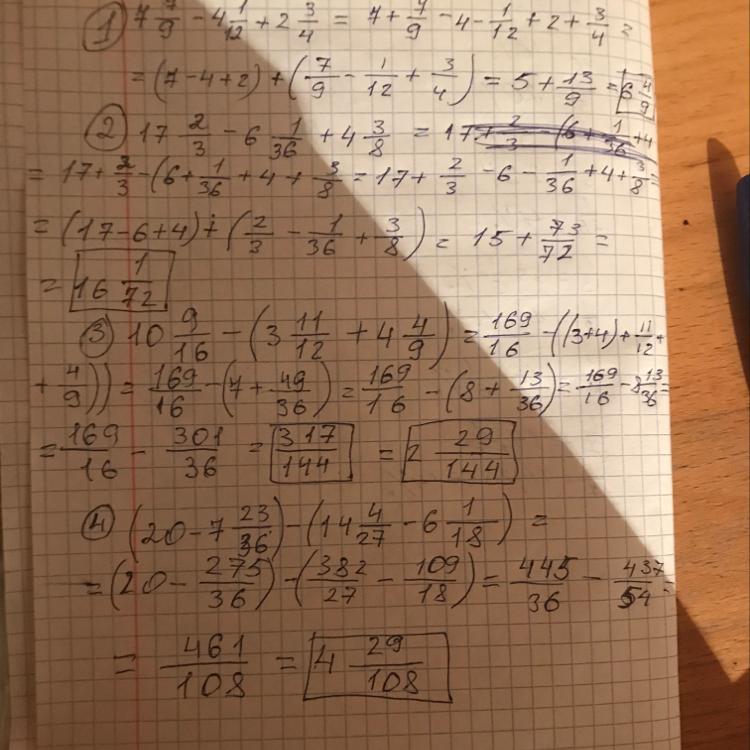 ① 7 7/9 - 4 1/12 + 2 3/4 = 7 + 7/9 - 4 - 1/12 + 2 + 3/4 =
= (7-4+2) + (7/9 - 1/12 + 3/4) = 5 + 13/9 = 6 4/9
② 17 2/3 - 6 1/36 + 4 3/8 = 17 + 2/3 - (6 + 1/36 + 4
= 17 + 2/3 - (6 + 1/36 + 4 + 3/8 = 17 + 2/3 - 6 - 1/36 + 4 + 3/8 =
= (17-6+4) + (2/3 - 1/36 + 3/8) = 15 + 73/72 =
= 16 1/72
③ 10 9/16 - (3 11/12 + 4 4/9) = 169/16 - ((3+4) + 11/12 +
+ 4/9)) = 169/16 - (7 + 49/36) = 169/16 - (8 + 13/36) = 169/16 - 8 13/36 =
= 169/16 - 301/36 = 317/144 = 2 29/144
④ (20 - 7 23/36) - (14 4/27 - 6 1/18) =
= (20 - 275/36) - (382/27 - 109/18) = 445/36 - 437/54 =
= 461/108 = 4 29/108